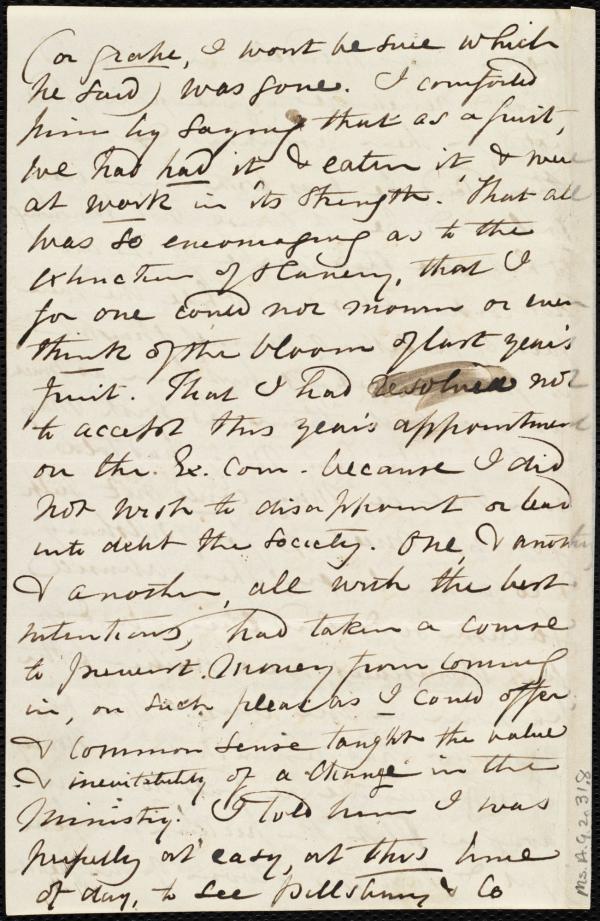 (or grape, I wont be sure which
he said) was gone. I comforted
him by saying that as a fruit,
we had had it & eaten it, & were
at work in its strength. That all
was so encouraging as to the
extinction of slavery, that I
for one could not mourn or even
think of the bloom of last year's
fruit. That I had resolved not
to accept this year's appointment
on the Ex. Com. because I did
not wish to disappoint or lead
into debt the society. One, & another
& another, all with the best
intentions, had taken a course
to prevent money from coming
in, on such pleas as I could offer
& common sense taught the value
& inevitability of a change in the
Ministry. I told him I was
perfectly at easy, at this time
of day, to see Pillsbury & Co
Ms. A.9.2. 31,8